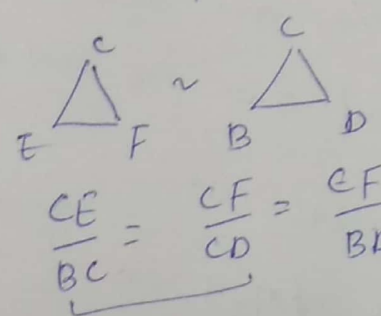 C ~ C
E F B D
CE/BC = CF/CD = EF/BD